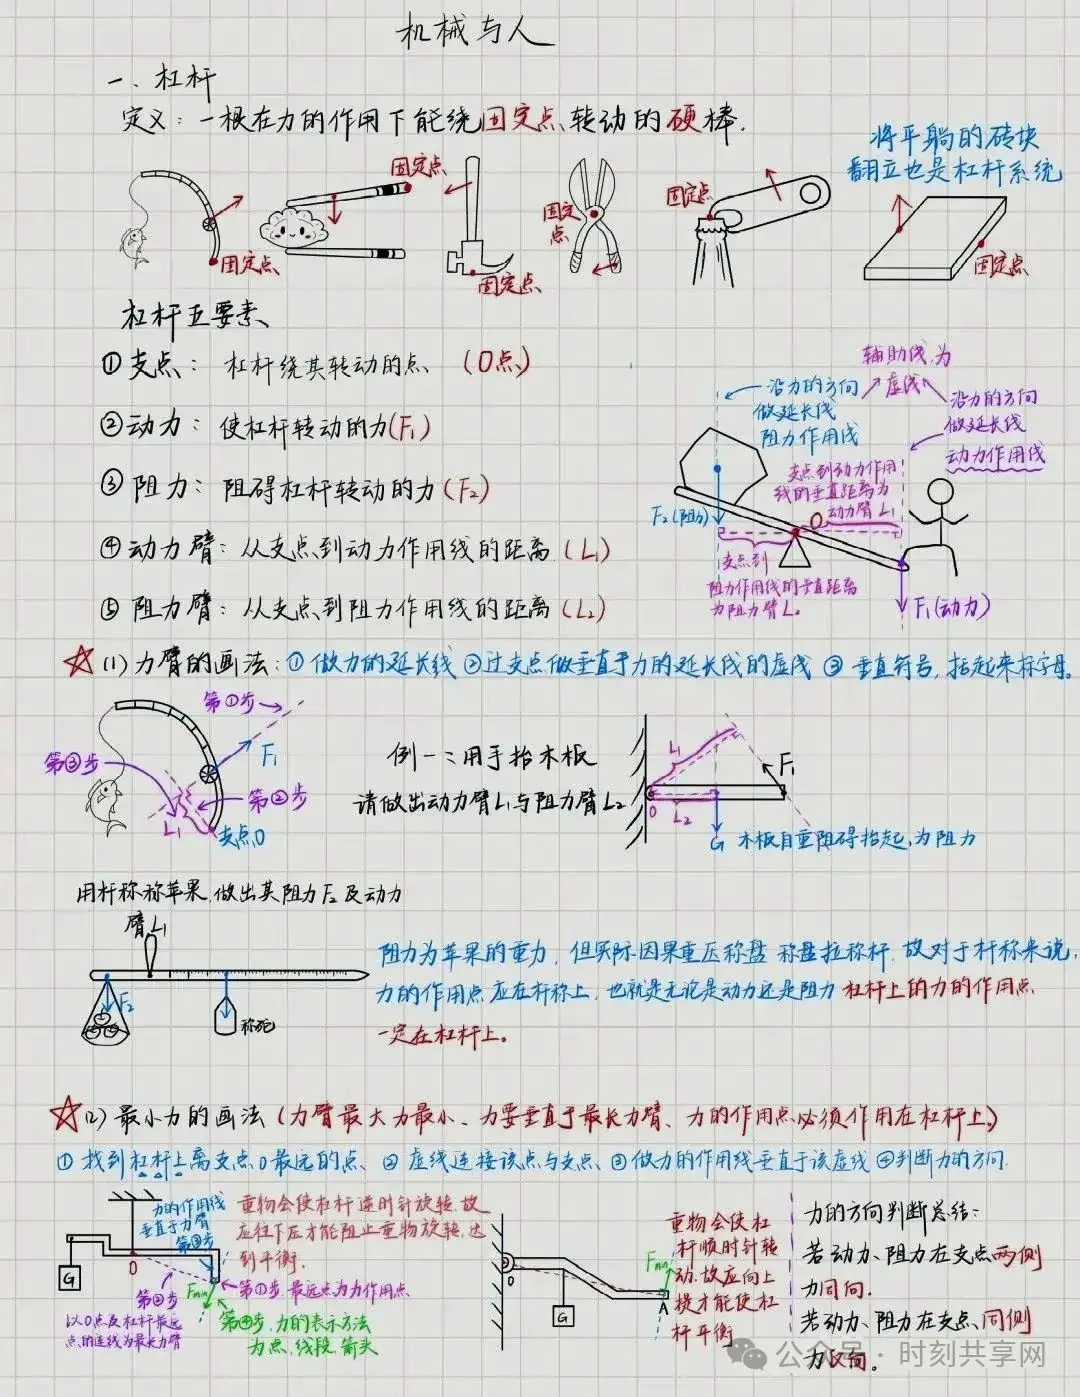 机械与人
一、杠杆
定义：一根在力的作用下能绕固定点转动的硬棒.
将平躺的砖块
翻立也是杠杆系统
固定点
固定点
固定点
固定点
固定点
固定点
杠杆五要素、
①支点：杠杆绕其转动的点、（O点）
②动力：使杠杆转动的力(F₁)
③阻力：阻碍杠杆转动的力(F₂)
④动力臂：从支点到动力作用线的距离(L₁)
⑤阻力臂：从支点到阻力作用线的距离(L₂)
辅助线为
虚线
沿力的方向
做延长线
阻力作用线
沿力的方向
做延长线
动力作用线
支点到动力作用
线的垂直距离为
动力臂L₁
F₂(阻力)
O
支点到
阻力作用线的垂直距离
为阻力臂L₂
F₁(动力)
☆(1)力臂的画法：①做力的延长线②过支点做垂直于力的延长线的虚线③垂直符号，括起来标字母。
第①步
F₁
第③步
第②步
L₁
支点O
例一：用手抬木板
请做出动力臂L₁与阻力臂L₂
L₁
F₁
O
L₂
G 木板自重阻碍抬起，为阻力
用杆称称苹果，做出其阻力F₂及动力
臂L₁
F₂
称砣
阻力为苹果的重力，但实际因果重压称盘 称盘拉称杆，故对于杆称来说，
力的作用点应在杆称上，也就是无论是动力还是阻力 杠杆上的力的作用点
一定在杠杆上。
☆(2)最小力的画法（力臂最大力最小、力要垂直于最长力臂、力的作用点必须作用在杠杆上）
①找到杠杆上离支点O最远的点、②虚线连接该点与支点、③做力的作用线垂直于该虚线④判断力的方向.
力的作用线
垂直于力臂
第③步
重物会使杠杆逆时针旋转，故
应往下压才能阻止重物旋转，达
到平衡.
G
O
Fmin
第①步，最远点为力作用点
第②步
以O点及杠杆最远
点的连线为最长力臂
第④步，力的表示方法
为点，线段，箭头
O
G
Fmin
A
重物会使杠
杆顺时针转
动，故应向上
提才能使杠
杆平衡
力的方向判断总结：
若动力、阻力在支点两侧
力同向.
若动力、阻力在支点同侧
力反向。
公众号·时刻共享网